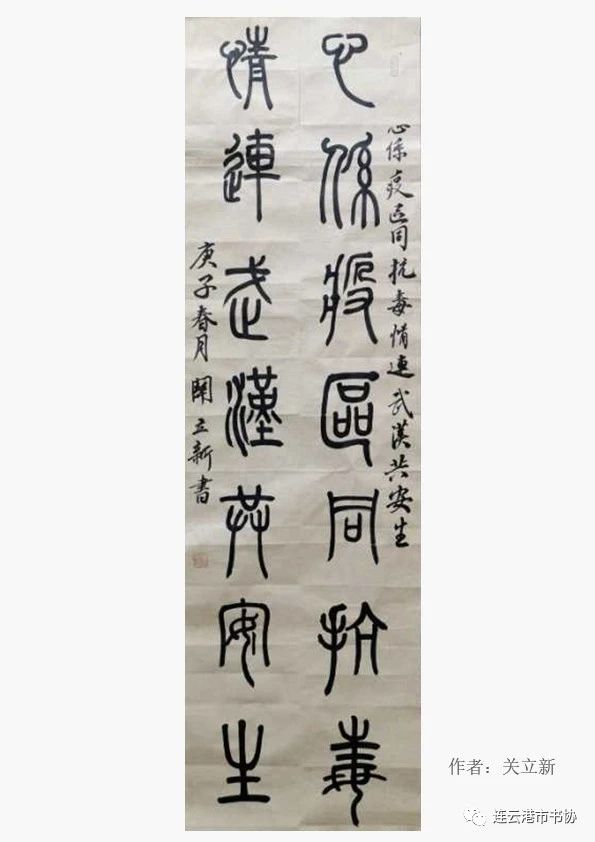 心係疫區同抗毒
心係疫区同抗毒情連武漢共安生
情連武漢共安生
庚子春月關立新書
作者：关立新
连云港市书协